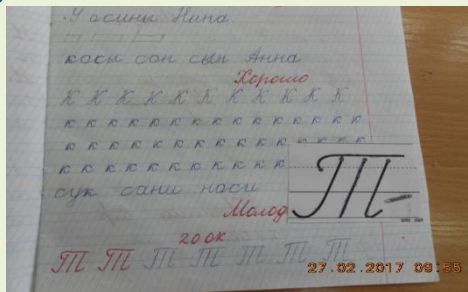 У осины Нина.
косы сон сын Анна
Хорошо
К К К К К К К К К К К
к к к к к к к к к к к к к к к
к к к к к к к к к к к к к к к
к к к к к к к к к к к
сук сани наси
Молод
Т
20 ок
Т Т Т Т Т Т Т
27.02.2017 09:35